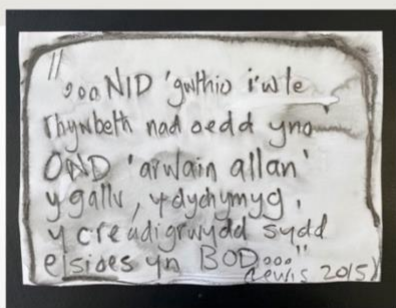 "...NID 'gwthio i'w le
rhywbeth nad oedd yno'
OND 'arwain allan'
y gallu, y dychymyg,
y creadigrwydd sydd
eisioes yn BOD..."
(Lewis 2015)